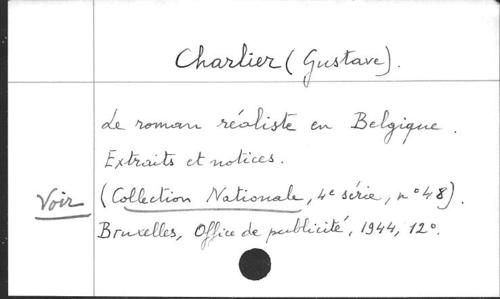 Charlier (Gustave).
Le roman réaliste en Belgique.
Extraits et notices.
Voir (Collection Nationale, 4e série, n° 48).
Bruxelles, Office de publicité, 1944, 12°.